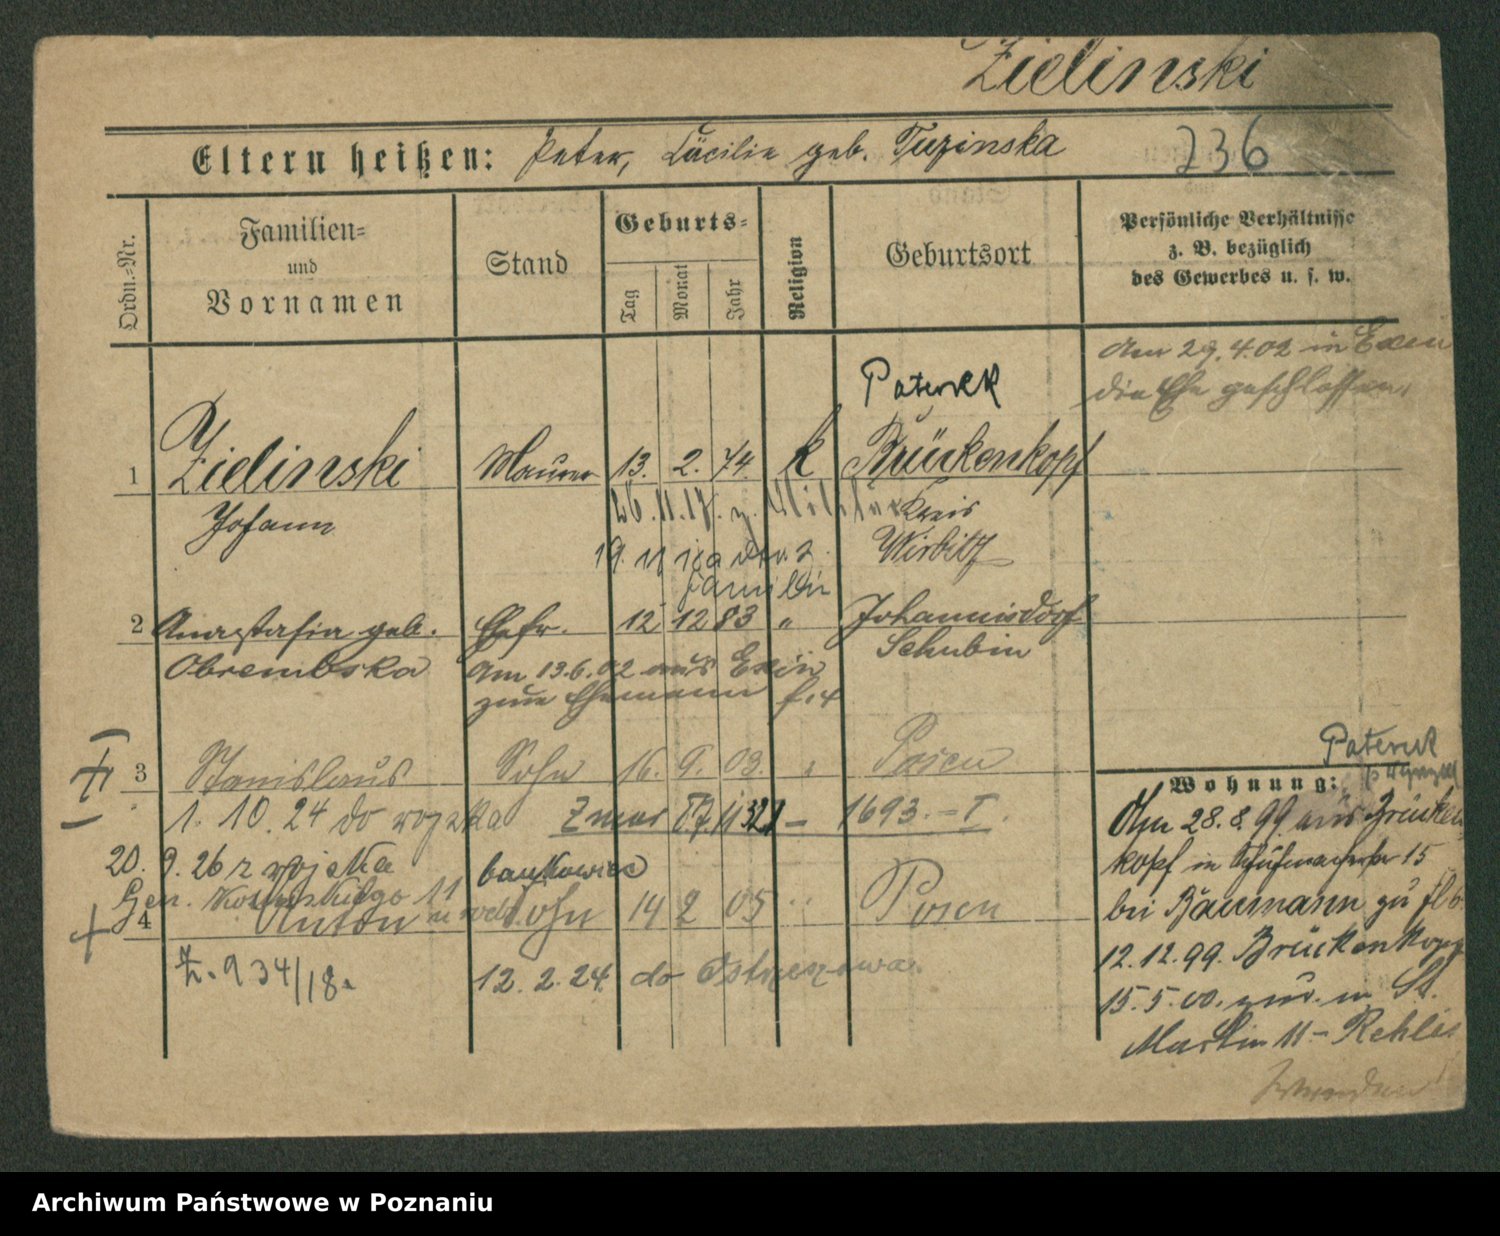 Zielinski
Eltern heißen: Peter, Cäcilie geb. Tuzinska 236
Ordn.-Nr.
Familien-
und
Vornamen
Stand
Geburts-
Tag
Monat
Jahr
Religion
Geburtsort
Persönliche Verhältnisse
z. B. bezüglich
des Gewerbes u. s. w.
Am 29.4.02 in Exin
die Ehe geschlossen.
Paterek
1 Zielinski Maurer 13. 2. 74. k Brückenkopf
26.11.17. z. Militär
Johann Kreis
Wirsitz
19. 11
Familie
2 Anastasia geb. Ehefr. 12 12 83 " Johannisdorf
Obrembska Schubin
Am 13.6.02 aus Exin
zum Ehemann
3 Stanislaus Sohn 16. 9. 03. " Posen
1. 10. 24 do wojska Zmar 1693.-I.
20. 9. 26 z wojska bankowiec
Gen. Kosinskiego 11
4 Anton Sohn 14 2 05 " Posen
Z. 934/18.
12. 2. 24 do Ostrzeszowa.
Paterek
Wohnung:
Am 28.8.99 aus Brücken
kopf in Schuhmacherstr 15
bei Baumann zu
12.12.99. Brückenkopf
15.5.00. zur. in St.
Martin 11 -
Archiwum Państwowe w Poznaniu